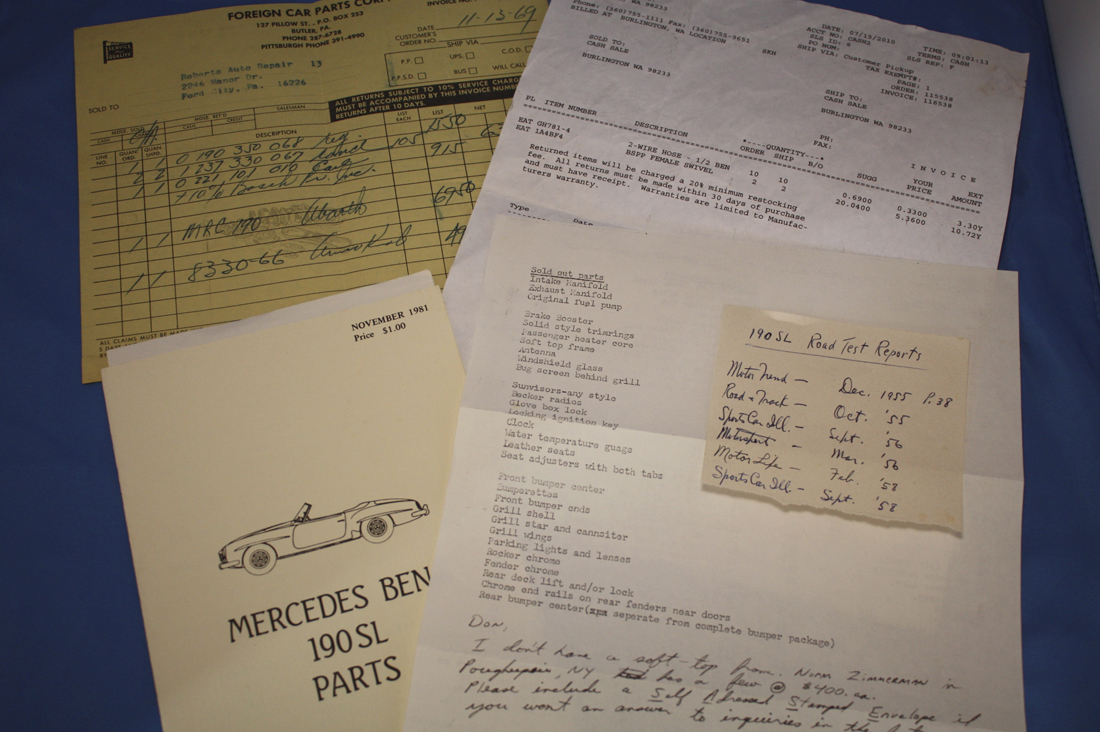 FOREIGN CAR PARTS
127 PILLOW ST., P.O. BOX 252
BUTLER, PA.
PHONE 287-6728
PITTSBURGH PHONE 391-4990
INVOICE NO.
DATE 11-13-69
CUSTOMER'S
ORDER NO.
SHIP VIA
P.P.
UPS
C.O.D.
P.P.S.D.
BUS
WILL CALL
Roberts Auto Repair 13
2246 Manor Dr.
Ford City, Pa. 16226
SOLD TO
ALL RETURNS SUBJECT TO 10% SERVICE CHARGE
MUST BE ACCOMPANIED BY THIS INVOICE NUMBER
RETURNS AFTER 10 DAYS.
SALESMAN
LINE NO.
QUAN. ORD.
QUAN. SHPD.
DESCRIPTION
LIST EACH
LIST
NET
0 190 350 068
1 237 330 067
105
915
+10% Bosch Pr. Inc.
1 1 MRC 190 Abarth
6950
1 1 8330-66
ALL CLAIMS MUST BE
WA 98233
Phone: (360)755-1111 Fax: (360)755-3651
BILLED AT BURLINGTON, WA LOCATION
SOLD TO:
CASH SALE
BURLINGTON WA 98233
DATE: 07/15/2010
ACCT NO: CASH2
SLS ID: 8
PO NUM:
SHIP VIA: Customer Pickup
TAX EXEMPT#:
TERMS: CASH
SLS REP: F
PAGE: 1
ORDER: 115538
INVOICE: 116538
SHIP TO:
CASH SALE
BURLINGTON WA 98233
PH:
FAX:
I N V O I C E
PL ITEM NUMBER DESCRIPTION *----QUANTITY---* ORDER SHIP B/O SUGG YOUR PRICE EXT AMOUNT
EAT GH781-4 2-WIRE HOSE - 1/2 BEN 10 10 0.6900 0.3300 3.30Y
EAT 1A4BF4 BSPP FEMALE SWIVEL 2 2 20.0400 5.3600 10.72Y
Returned items will be charged a 20% minimum restocking
fee. All returns must be made within 30 days of purchase
and must have receipt. Warranties are limited to Manufac-
turers warranty.
Type Date
Sold out parts
Intake Manifold
Exhaust Manifold
Original fuel pump
Brake Booster
Solid style trimrings
Passenger heater core
Soft top frame
Antenna
Windshield glass
Bug screen behind grill
Sunvisors-any style
Becker radios
Glove box lock
Locking ignition key
Clock
Water temperature guage
Leather seats
Seat adjusters with both tabs
Front bumper center
Bumperettes
Front bumper ends
Grill shell
Grill star and cannsiter
Grill wings
Parking lights and lenses
Rocker chrome
Fender chrome
Rear deck lift and/or lock
Chrome end rails on rear fenders near doors
Rear bumper center( seperate from complete bumper package)
Don,
I don't have a soft-top frame. Norm Zimmerman in
Poughkeepsie, NY has a few @ $400. ea.
Please include a Self Adressed Stamped Envelope if
you want an answer to inquiries in the
190SL Road Test Reports
Motor Trend — Dec. 1955 P.38
Road & Track — Oct. '55
Sports Car Ill. — Sept. '56
Motorsport — Mar. '56
Motor Life — Feb. '58
Sports Car Ill. — Sept. '58
NOVEMBER 1981
Price $1.00
MERCEDES BEN
190SL
PARTS